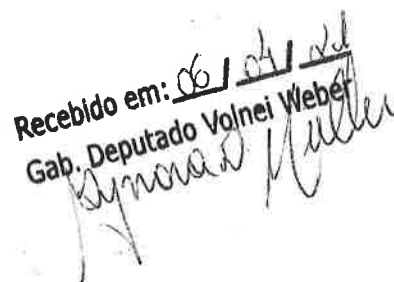 Recebido em: 06 / 04 / 21
Gab. Deputado Volnei Weber